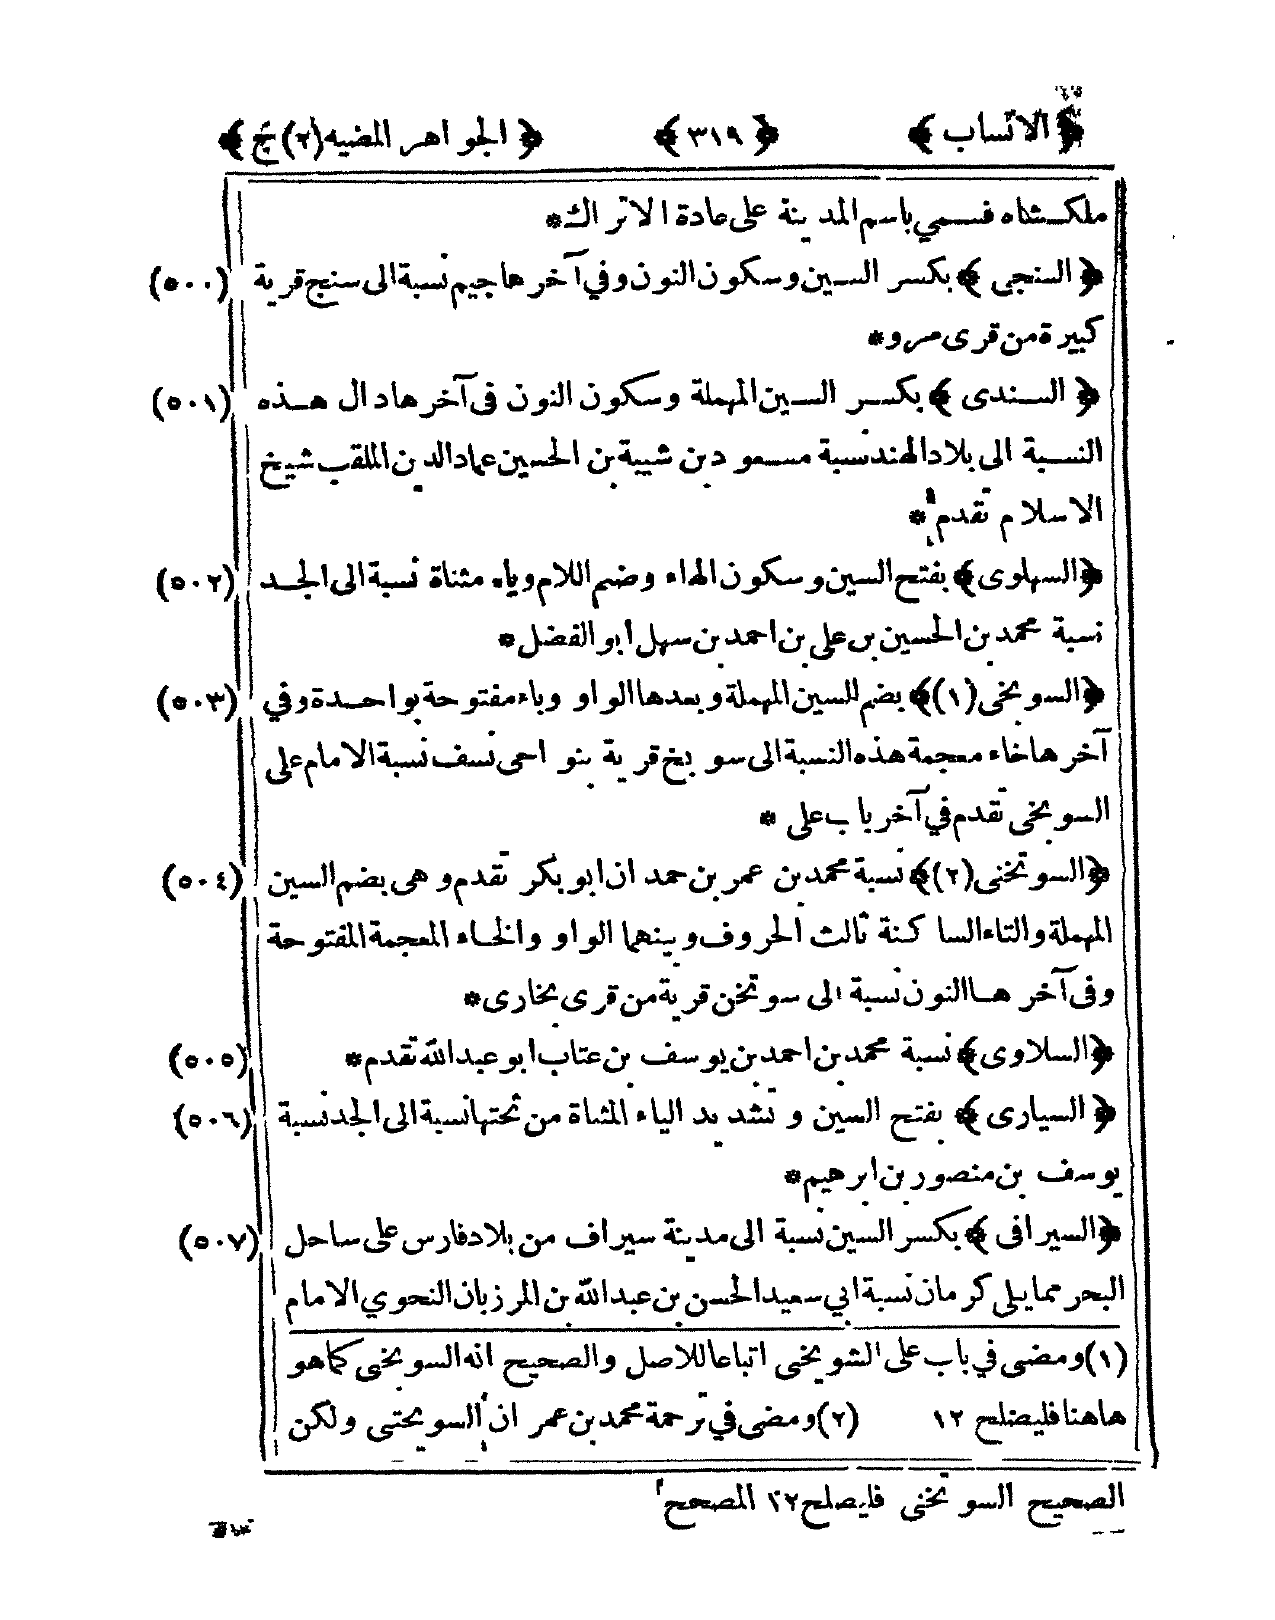 ﴿ الانساب ﴾ ﴿ ٣١٩ ﴾ ﴿ الجواهر المضيه (٢) ج ﴾
ملكشاه فسمي باسم المدينة على عادة الاتراك *
﴿ السنجى ﴾ بكسر السين وسكون النون وفي آخرها جيم نسبة الى سنج قرية (٥٠٠)
كبيرة من قرى مرو *
﴿ السندى ﴾ بكسر السين المهملة وسكون النون فى آخرها دال هذه (٥٠١)
النسبة الى بلاد الهند نسبة مسعود بن شيبة بن الحسين عماد الدين الملقب شيخ
الاسلام تقدم *
﴿ السهلوى ﴾ بفتح السين وسكون الهاء وضم اللام وياء مثناة نسبة الى الجد (٥٠٢)
نسبة محمد بن الحسين بن على بن احمد بن سهل ابو الفضل *
﴿ السوبخى (١) ﴾ بضم السين المهملة وبعدها الواو وباء مفتوحة بواحدة وفي (٥٠٣)
آخرها خاء معجمة هذه النسبة الى سوبخ قرية بنواحى نسف نسبة الامام على
السوبخى تقدم في آخر باب على *
﴿ السوتخنى (٢) ﴾ نسبة محمد بن عمر بن حمدان ابو بكر تقدم وهى بضم السين (٥٠٤)
المهملة والتاء الساكنة ثالث الحروف وبينهما الواو والخاء المعجمة المفتوحة
وفى آخرها النون نسبة الى سوتخن قرية من قرى بخارى *
﴿ السلاوى ﴾ نسبة محمد بن احمد بن يوسف بن عتاب ابو عبد الله تقدم * (٥٠٥)
﴿ السيارى ﴾ بفتح السين وتشديد الياء المثناة من تحتها نسبة الى الجد نسبة (٥٠٦)
يوسف بن منصور بن ابرهيم *
﴿ السيرافى ﴾ بكسر السين نسبة الى مدينة سيراف من بلاد فارس على ساحل (٥٠٧)
البحر مما يلى كرمان نسبة ابي سعيد الحسن بن عبد الله بن المرزبان النحوي الامام
(١) ومضى في باب على الشوبخى اتباعا للاصل والصحيح انه السوبخى كما هو
هاهنا فليصلح ١٢ (٢) ومضى في ترجمة محمد بن عمر ان السويحتى ولكن
الصحيح السوتخنى فليصلح ١٢ المصحح